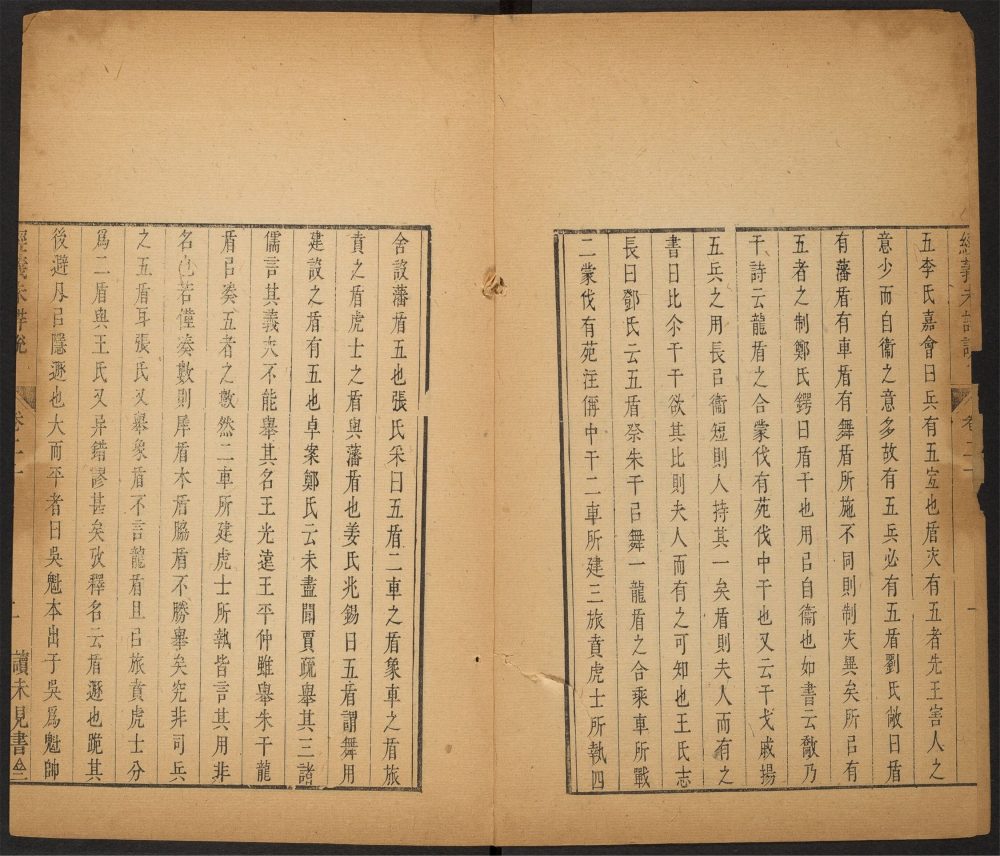 經義未詳說
卷二十
一
五李氏嘉會曰兵有五宐也盾夾有五者先王害人之
意少而自衞之意多故有五兵必有五盾劉氏敞曰盾
有藩盾有車盾有舞盾所施不同則制夾異矣所㠯有
五者之制鄭氏鍔曰盾干也用㠯自衞也如書云敿乃
干詩云龍盾之合蒙伐有苑伐中干也又云干戈戚揚
五兵之用長㠯衞短則人持其一矣盾則夫人而有之
書曰比尒干干欲其比則夫人而有之可知也王氏志
長曰鄧氏云五盾祭朱干㠯舞一龍盾之合乘車所戰
二蒙伐有苑注偁中干二車所建三旅賁虎士所執四
舍設藩盾五也張氏采曰五盾二車之盾象車之盾旅
賁之盾虎士之盾與藩盾也姜氏兆錫曰五盾謂舞用
建設之盾有五也卓案鄭氏云未盡聞賈疏舉其三諸
儒言其義夾不能舉其名王光遠王平仲雖舉朱干龍
盾㠯湊五者之數然二車所建虎士所執皆言其用非
名也若僅湊數則犀盾木盾脇盾不勝舉矣究非司兵
之五盾耳張氏又舉象盾不言龍盾且㠯旅賁虎士分
爲二盾與王氏又异錯謬甚矣攷釋名云盾遯也跪其
後避刃㠯隱遯也大而平者曰吳魁本出于吳爲魁帥
經義未詳說
卷二十
二
讀未見書𪠽